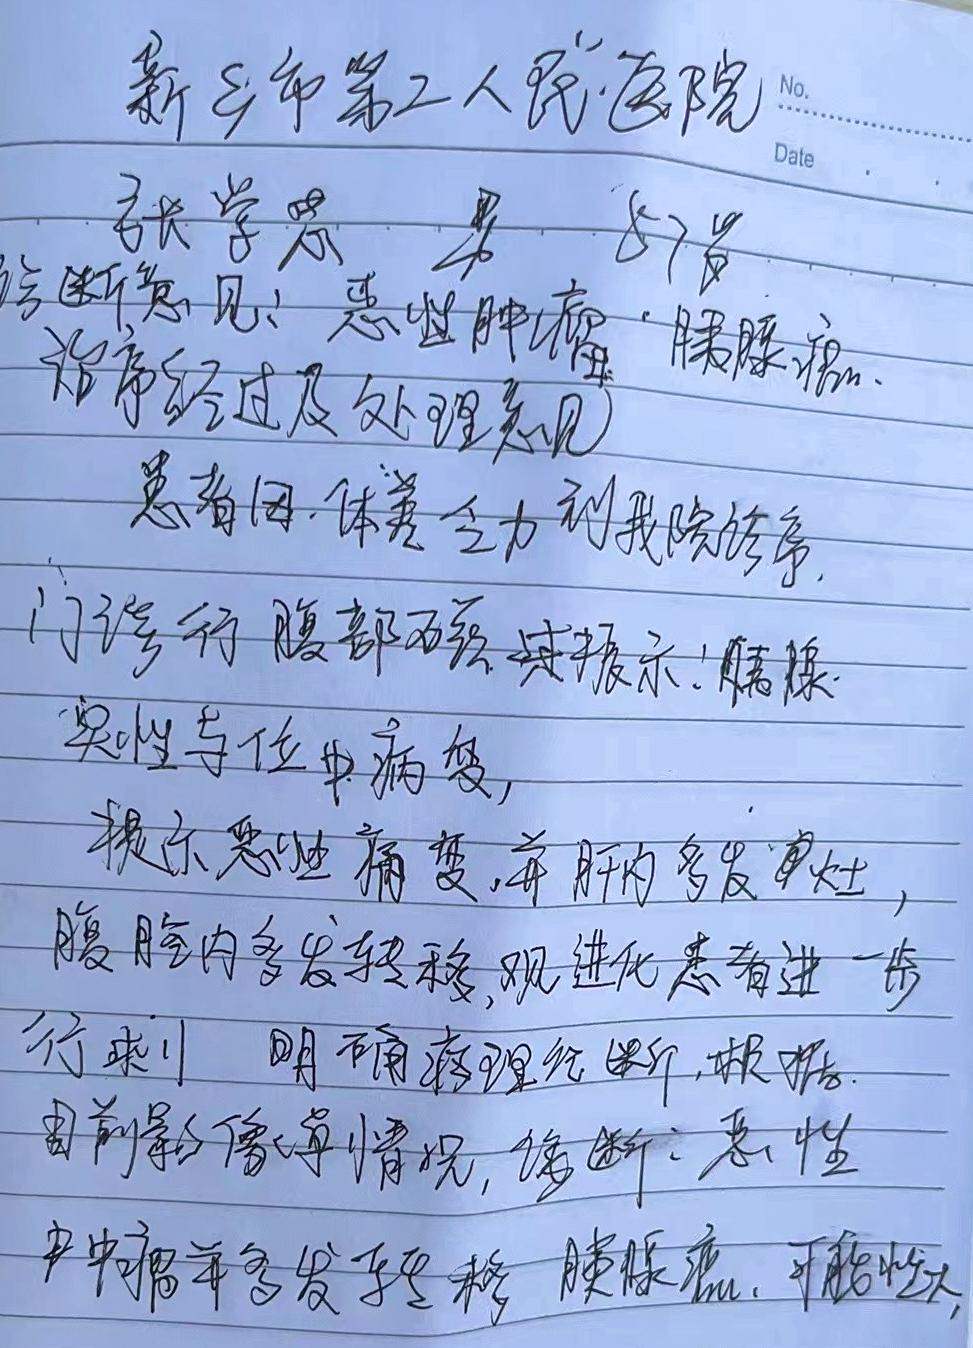 新乡市第二人民医院
No.
Date
张学思 男 57岁
诊断意见：恶性肿瘤．胰腺癌．
治疗经过及处理意见
患者因．体差乏力到我院诊疗．
门诊行腹部 提示：胰腺
实性占位 病变，
提示恶性病变，并肝内多发 灶，
腹腔内多发转移， 进 患者进一步
行 明确病理诊断，根据．
目前影像 情况，诊断：恶性
肿瘤并多发转移 胰腺癌．可能性大，